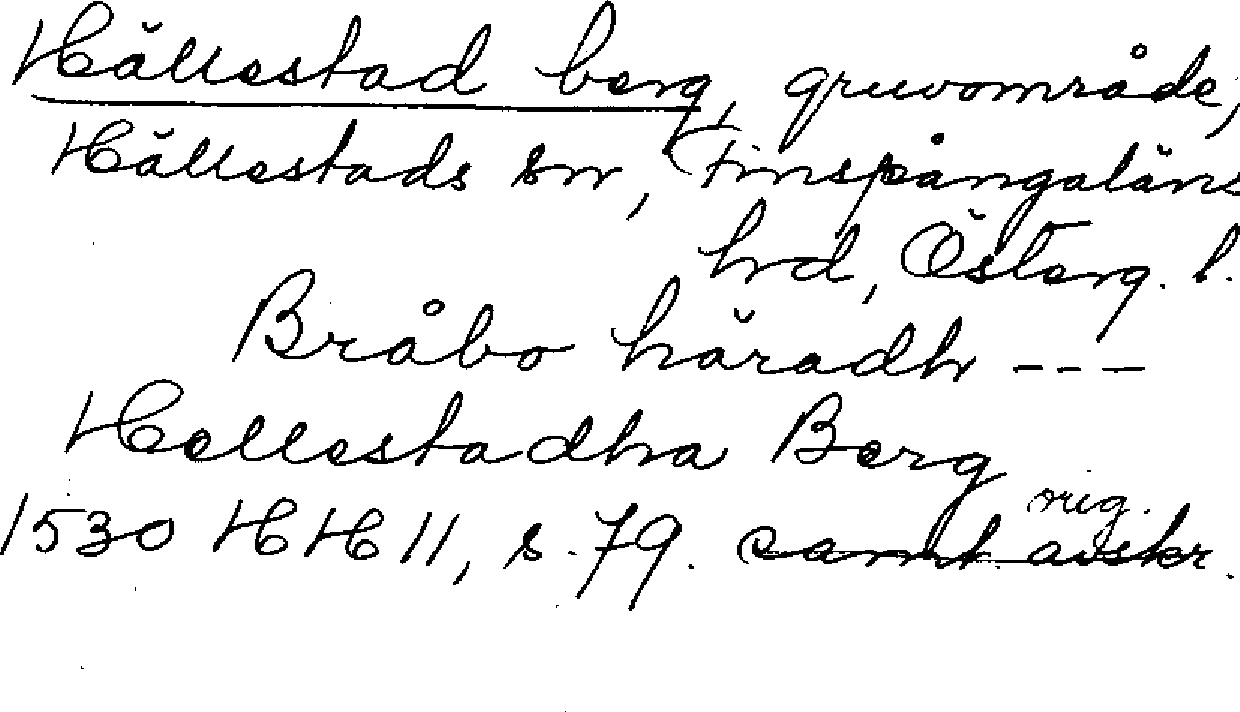 Hällestad berg, gruvområde,
Hällestads sn, Finspångaläns
hd, Österg. l.
Bråbo häradh ---
Hellestadha Berg
1530 HH 11, s. 79. samt. avskr.